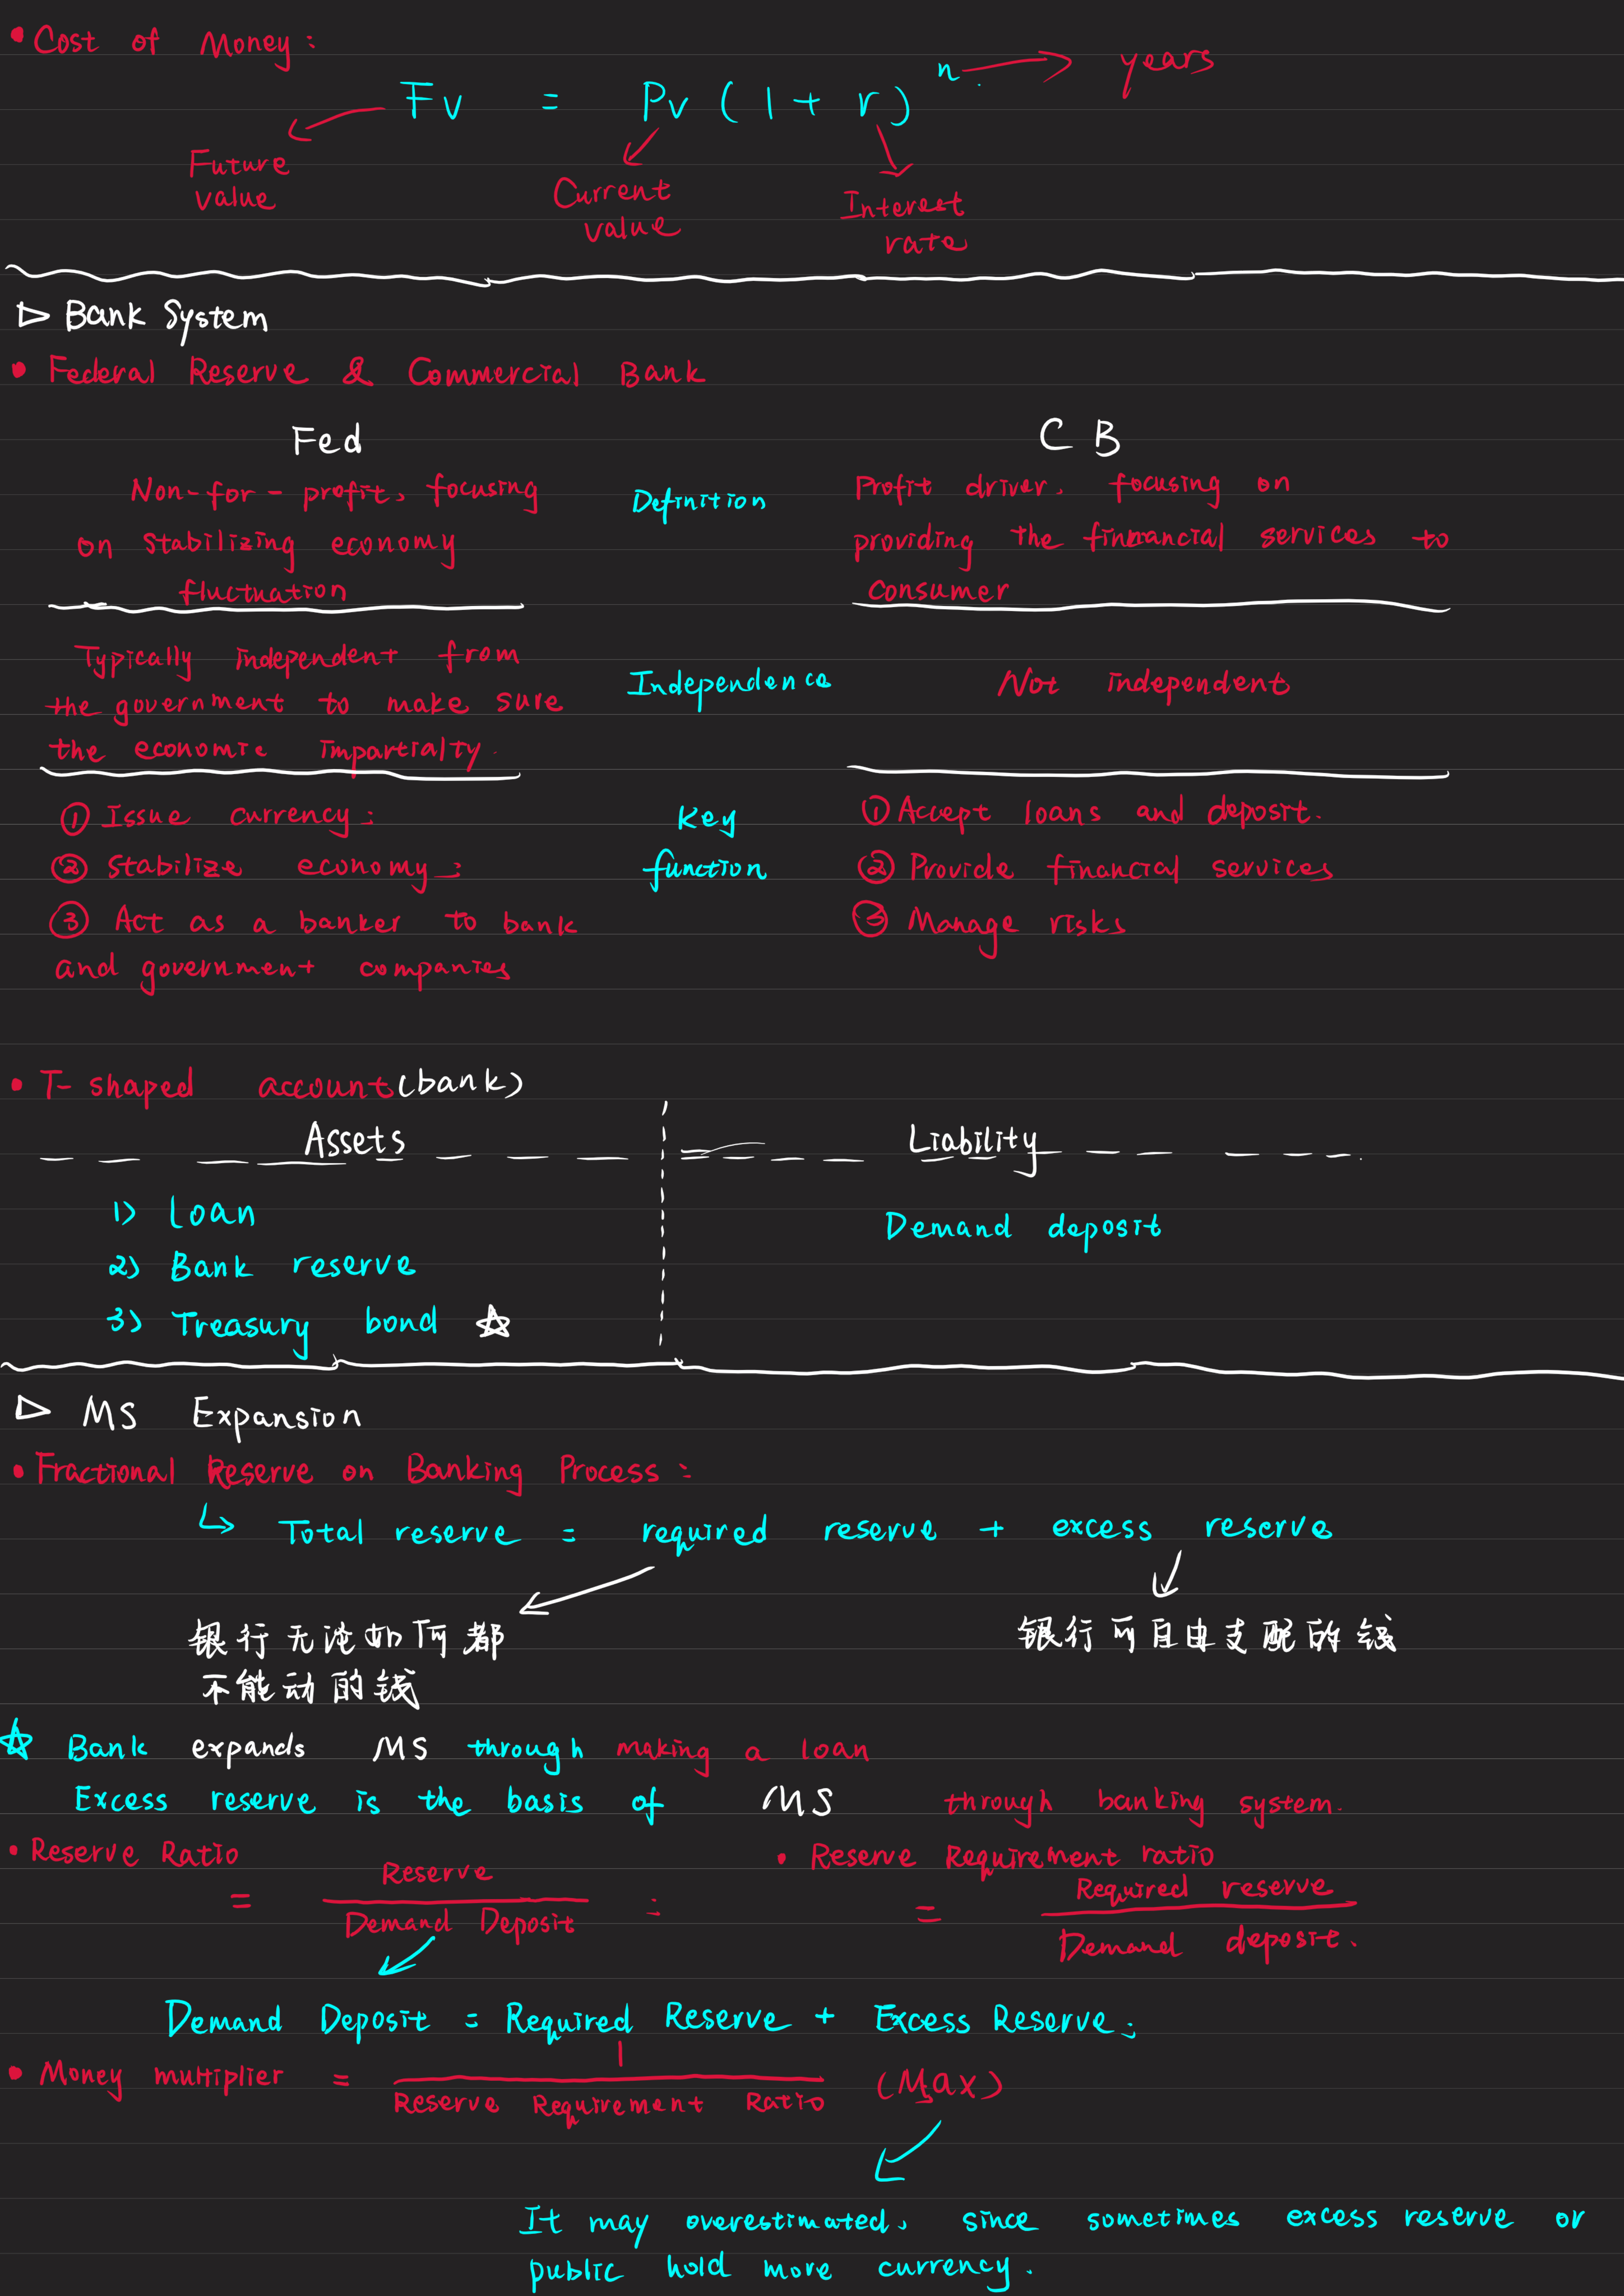 • Cost of Money:
Fv = Pv (1 + r)ⁿ → years
Future value
Current value
Interest rate
▷ Bank System
• Federal Reserve & Commercial Bank
Fed
C B
Non-for-profit, focusing
on stabilizing economy
fluctuation
Definition
Profit driver, focusing on
providing the finnancial services to
consumer
Typically independent from
the government to make sure
the economic impartialty.
Independence
Not independent
① Issue currency;
② Stabilize economy;
③ Act as a banker to bank
and government companies
Key
function
① Accept loans and deposit.
② Provide financial services
③ Manage risks
• T-shaped account (bank)
Assets
Liability
1) Loan
2) Bank reserve
3) Treasury bond ☆
Demand deposit
▷ MS Expansion
• Fractional Reserve on Banking Process:
↳ Total reserve = required reserve + excess reserve
银行无论如何都
不能动的钱
银行可自由支配的钱
☆ Bank expands MS through making a loan
Excess reserve is the basis of MS through banking system.
• Reserve Ratio
= Reserve / Demand Deposit ;
• Reserve Requirement ratio
= Required reserve / Demand deposit.
Demand Deposit = Required Reserve + Excess Reserve;
• Money multiplier = 1 / Reserve Requirement Ratio (Max)
It may overestimated, since sometimes excess reserve or
public hold more currency.